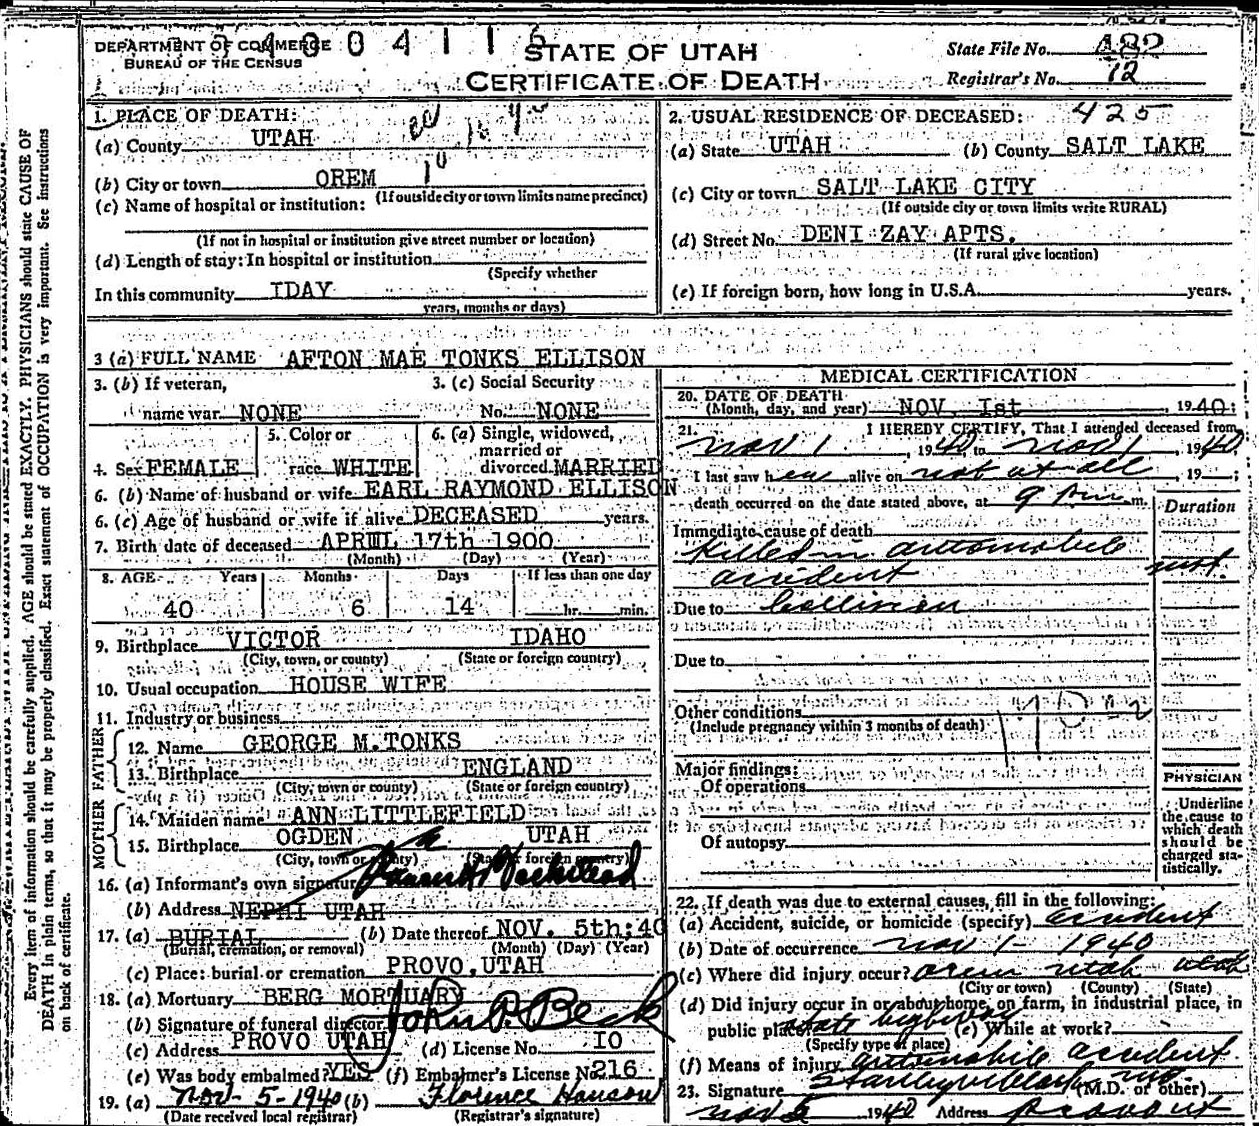 DEPARTMENT OF COMMERCE
BUREAU OF THE CENSUS
4 0 0 4 1 1 6
STATE OF UTAH
CERTIFICATE OF DEATH
State File No.
Registrar's No. 12
1. PLACE OF DEATH:
(a) County UTAH
(b) City or town OREM
(If outside city or town limits name precinct)
(c) Name of hospital or institution:
(If not in hospital or institution give street number or location)
(d) Length of stay: In hospital or institution
(Specify whether
In this community IDAY
years, months or days)
2. USUAL RESIDENCE OF DECEASED: 425
(a) State UTAH (b) County SALT LAKE
(c) City or town SALT LAKE CITY
(If outside city or town limits write RURAL)
(d) Street No. DENI ZAY APTS.
(If rural give location)
(e) If foreign born, how long in U.S.A. years.
3 (a) FULL NAME AFTON MAE TONKS ELLISON
3. (b) If veteran,
name war NONE
3. (c) Social Security
No. NONE
4. Sex FEMALE
5. Color or
race WHITE
6. (a) Single, widowed,
married or
divorced MARRIED
6. (b) Name of husband or wife EARL RAYMOND ELLISON
6. (c) Age of husband or wife if alive DECEASED years.
7. Birth date of deceased APRIL 17th 1900
(Month) (Day) (Year)
8. AGE Years Months Days If less than one day
40 6 14 hr. min.
9. Birthplace VICTOR IDAHO
(City, town, or county) (State or foreign country)
10. Usual occupation HOUSE WIFE
11. Industry or business
FATHER
12. Name GEORGE M. TONKS
13. Birthplace ENGLAND
(City, town or county) (State or foreign country)
MOTHER
14. Maiden name ANN LITTLEFIELD
15. Birthplace OGDEN UTAH
(City, town or county) (State or foreign country)
16. (a) Informant's own signature
(b) Address NEPHI UTAH
17. (a) BURIAL (b) Date thereof NOV. 5th:40
(Burial, cremation, or removal) (Month) (Day) (Year)
(c) Place: burial or cremation PROVO, UTAH
18. (a) Mortuary BERG MORTUARY
(b) Signature of funeral director John P. Beck
(c) Address PROVO UTAH (d) License No. IO
(e) Was body embalmed? YES (f) Embalmer's License No. 216
19. (a) Nov - 5 - 1940 (b) Florence Hanson
(Date received local registrar) (Registrar's signature)
MEDICAL CERTIFICATION
20. DATE OF DEATH
(Month, day, and year) NOV. Ist, 1940
21. I HEREBY CERTIFY, That I attended deceased from
Nov 1, 1940 to Nov 1, 1940
I last saw her alive on not at all, 19 ;
death occurred on the date stated above, at 9 pm m.
Duration
Immediate cause of death
Killed in automobile
accident
Due to Collision
Due to
Other conditions
(Include pregnancy within 3 months of death)
Major findings:
Of operations
Of autopsy
PHYSICIAN
Underline
the cause to
which death
should be
charged sta-
tistically.
22. If death was due to external causes, fill in the following:
(a) Accident, suicide, or homicide (specify) accident
(b) Date of occurrence Nov 1 - 1940
(c) Where did injury occur? Orem Utah Utah
(City or town) (County) (State)
(d) Did injury occur in or about home, on farm, in industrial place, in
public place? state highway (e) While at work?
(Specify type of place)
(f) Means of injury automobile accident
23. Signature (M.D. or other)
Nov 5 1940 Address Provo Ut
Every item of information should be carefully supplied. AGE should be stated EXACTLY. PHYSICIANS should state CAUSE OF
DEATH in plain terms, so that it may be properly classified. Exact statement of OCCUPATION is very important. See instructions
on back of certificate.